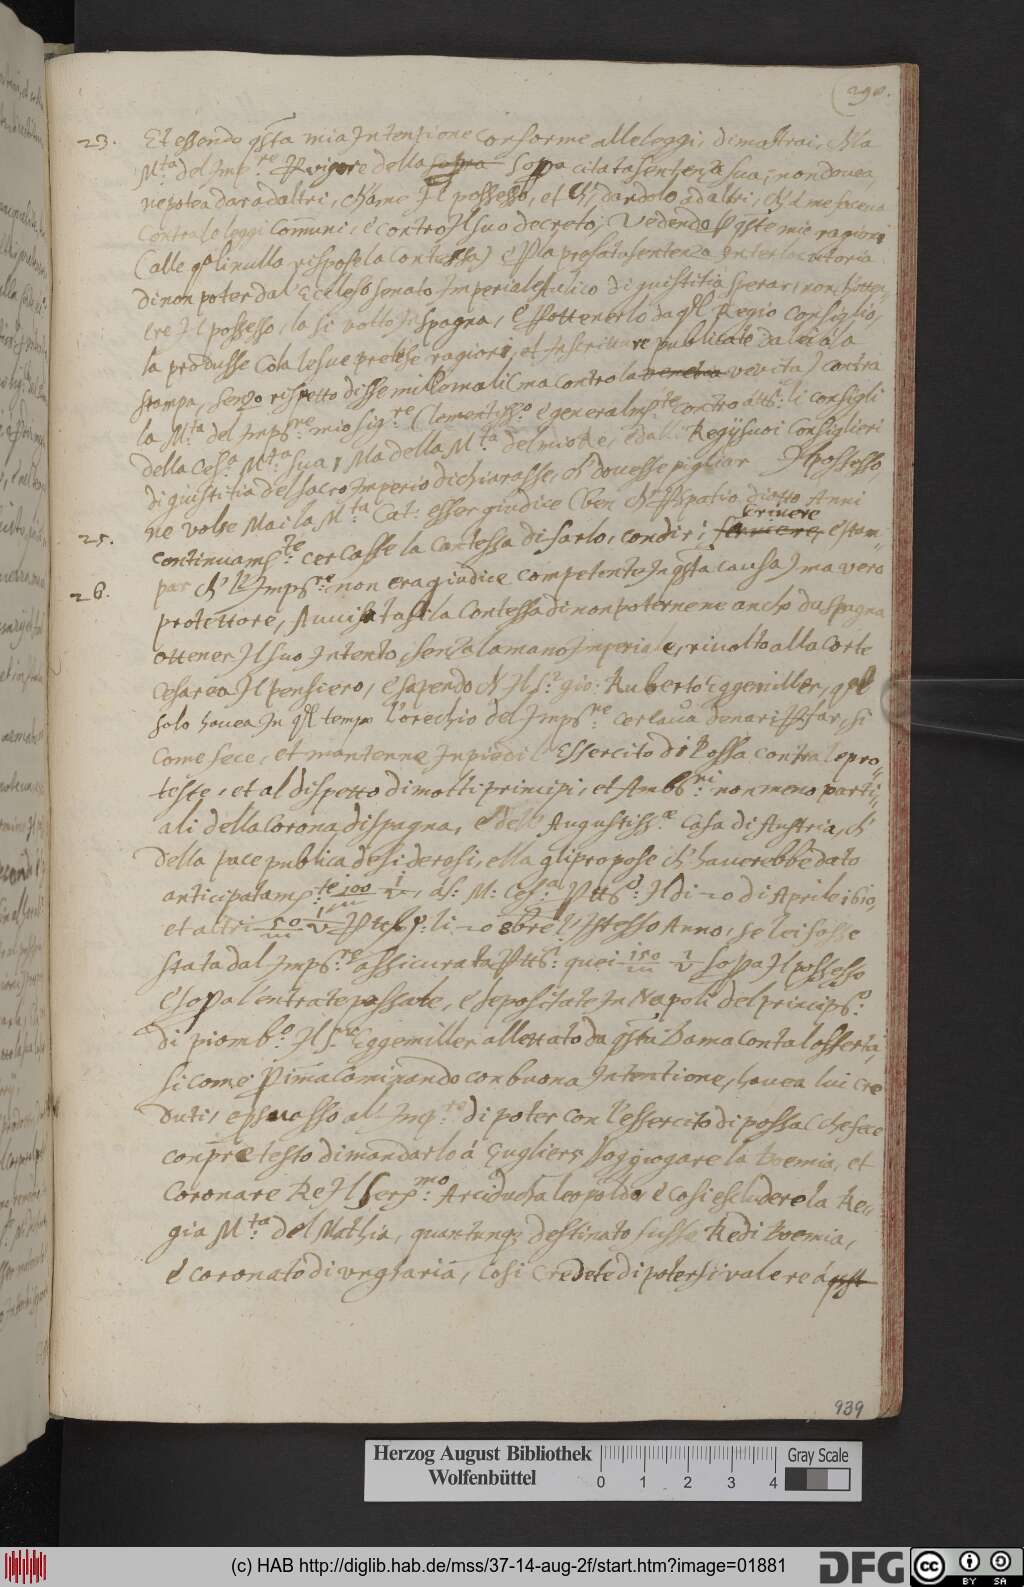 290.
23. Et essendo qsta mia Intenzione conforme alle leggi, dimostrai, ch' la
M.ta del Imp.re P vigore della sopra sopra citata sentenza sua, non douea,
ne potea dar ad altri, ch' á me Il possesso, et ch', dandolo ad altri, ch' á me faceua
contra le leggi Comuni, é contro Il suo decreto, Vedendo P qste mie ragioni
(alle qali nulla rispose la Contessa) é P la prefata sentenza Interlocutoria
di non poter dal' Eccelso senato Imperiale Aulico di giustitia sperar, non ch' otten-
ere Il possesso, la si voltò In spagna, é P ottenerlo da ql Regio Consiglio,
la produsse cola le sue pretese ragioni, et Inscritture publicate da lei á la
stampa, senzo rispetto disse mille mali (ma contro la venetia verita) contra
la M.ta del Imps.re mio sig.re Clementiss.o é generalmte contro tutti li consigli
della Ces.a M.ta sua, Ma della M.ta del mio Re, é dalli Regij suoi Consiglieri
di giustitia del sacro Imperio dichiarasse, ch' douesse pigliar Il possesso,
25. ne volse Mai la M.ta Cat: esser giudice (ben ch' P spatio diotto Anni
criuere
continuamte cercasse la Contessa di farlo, con dir, scriuere, e stam-
26. par ch' l' Imps.re non era giudice competente In qsta causa) ma vero
protettore, Auuistasi la Contessa di non poterne ne ancho da spagna
ottener Il suo Intento, senza la mano Imperiale, riuolto alla Corte
Cesarea Il pensiero, é sapendo ch' Il S.r gio: Ruberto Eggemiller, qal
solo hauea In ql tempo l'orechio del Imps.re Cerlaua denari P far, si
come fece, et mantenne In piedi l' Essercito di Possa contra le pro-
teste, et al dispetto di molti principi, et Ambs.ri non meno parti-
ali della Corona di spagna, é dell' Augustiss.a Casa di Austria, ch'
della pace publica desiderosi, ella gli propose ch' hauerebbe dato
anticipatam.te 100/m, as: M: Ces.a Il di 20 di Aprile 1610,
et altri 50/m P tutti li 20 8bre l' Istesso Anno, se lei fosse
stata dal Imps.re assicurata quei 150/m sopra Il possesso
é sopra l'entrate passate, é depositate In Napoli del princips.o
di piomb.o Il S.r Eggemiller allettato da qsta Dama con tal offerta,
si come prima caminando con buona Intentione, hauea lui cre
duti, epsuasso al' Imp.re di poter con l'essercito di possa (che fece
con pretesto di mandarlo á Gugliers soggiogare la Boemia, et
Coronare Re Il Serp.mo Arciducha leopoldo é Cosi escludere la Re-
gia M.ta del Mathia, quantunq; destinato fusse Re di Boemia,
é coronato di vngraria, Cosi Credete di potersi valere á qste
939
Herzog August Bibliothek
Wolfenbüttel
0 1 2 3 4
Gray Scale
(c) HAB http://diglib.hab.de/mss/37-14-aug-2f/start.htm?image=01881
DFG
cc BY SA